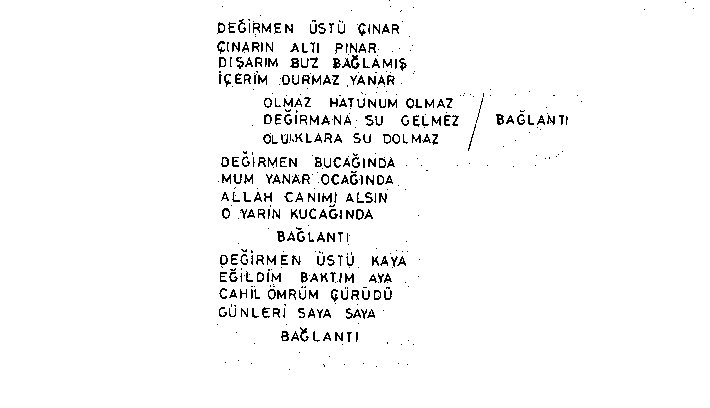 DEĞİRMEN ÜSTÜ ÇINAR
ÇINARIN ALTI PINAR
DIŞARIM BUZ BAĞLAMIŞ
İÇERİM DURMAZ YANAR
OLMAZ HATUNUM OLMAZ
DEĞİRMANA SU GELMEZ / BAĞLANTI
OLUKLARA SU DOLMAZ
DEĞİRMEN BUCAĞINDA
MUM YANAR OCAĞINDA
ALLAH CANIMI ALSIN
O YARİN KUCAĞINDA
BAĞLANTI
DEĞİRMEN ÜSTÜ KAYA
EĞİLDİM BAKTIM AYA
CAHİL ÖMRÜM ÇÜRÜDÜ
GÜNLERİ SAYA SAYA
BAĞLANTI